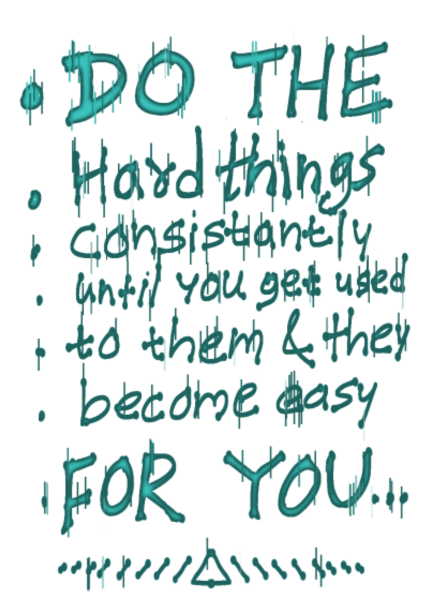 • DO THE
• Hard things
• consistantly
• until you get used
• to them & they
• become easy
• FOR YOU...